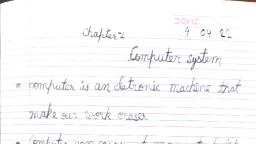 Chapter-1
4 04 22
Computer system
• computer is an eletronic machine that
make our work easer
• Computer can